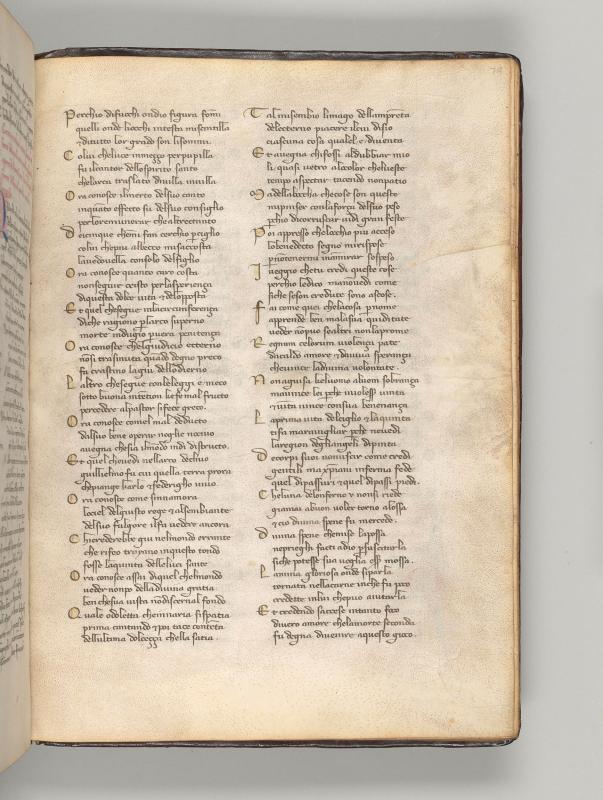 Perchio difuochi ondio figura fommi
quelli onde locchi intesta miscintilla
& ditutto lor grado son lisommi
Colui cheluce inmezzo perpupilla
fu ilcantor dellospirito santo
chelarca traslato diuilla inuilla
Ora conosce ilmerto delsuo canto
inquato effecto fu delsuo consiglio
perloremunerar che altrectanto
Deicinque chemi fan cerchio pciglio
colui chepiu albecco misaccosta
lauedouella consolo delfiglio
Ora conosce quanto caro costa
nonseguir cristo perlasperiença
diquesta dolce uita & dellopposta
Et quel chesegue inlacircumferença
diche ragiono plarco superno
morte indugio puera penitença
Ora conosce chelgiudicio etterno
nōsi trasmuta quādo degno preco
fa crastino lagiu dellodierno
Laltro chesegue conleleggi & meco
sotto buona intētion kefe mal fructo
percedere alpastor sifece greco
Ora conosce comel mal deducto
dalsuo bene operar noglie nociuo
auegna chesia ilmōdo indi distructo
Et quel cheuedi nellarco decliuo
guillielmo fu cui quella terra prora
chepiange karlo & federigho uiuo
Ora conosce come sinnamora
lociel delgiusto rege & alsembiante
delsuo fulgore ilfa uedere ancora
Chicrederebbe giu nelmondo errante
che rifeo troiano inquesto tondo
fosse laquinta delleluci sante
Ora conosce assai diquel chelmondo
ueder nonpo della diuina gratia
ben chesua uista nōdiscernal fondo
Quale alodetta cheinnaria sispatia
prima cantando & poi tace contēta
dellultima dolceçça chella satia
Tal misembio limago dellamprenta
delecterno piacere alcui disio
ciascuna cosa qualel e diuenta
Et auegna chifossi aldubbiar mio
li quasi uetro alcolor cheluieste
tempo aspectar tacendo nonpatio
Madellabocha checose son queste
mipinser conlaforça delsuo peso
pchio dicorruscar uidi gran feste
Poi appresso chelocchio piu acceso
lobenedecto segno mirispose
p nōtenermi inamirar sospeso
Iueggio chetu credi queste cose
perchio ledico manōuedi come
siche seson credute sono ascose
Fai come quei chelacosa pnome
apprende ben malasua quiditate
ueder nōpuo sealtri nonlaprome
Regnum celorum uiolença pate
dacaldo amore & dauiua sperança
cheuince ladiuina uolontate
Non aguisa keluomo aluom sobrança
mauince lei pche uuolessere uinta
& uinta uince consua benenança
Laprima uita delciglio & laquinta
tifa marauigliar pche neuedi
laregion degliangeli dipinta
Decorpi suoi nonuscir come credi
gentili maxpiani inferma fede
quel depassuri & quel depassi piedi
Cheluna deloinferno v nonsi riede
giamai abuon uoler torno alossa
& cio diuiua spene fu mercede
Diuiua spene chemise lapossa
neprieghi facti adio psuscitarla
siche potesse sua uoglia esser mossa
Lanima gloriosa onde siparla
tornata nellacarne inche fu poco
credette inlui chepuo aiutarla
Et credendo saccese intanto foco
diuero amore chelamorte seconda
fu degna diuenire aquesto gioco